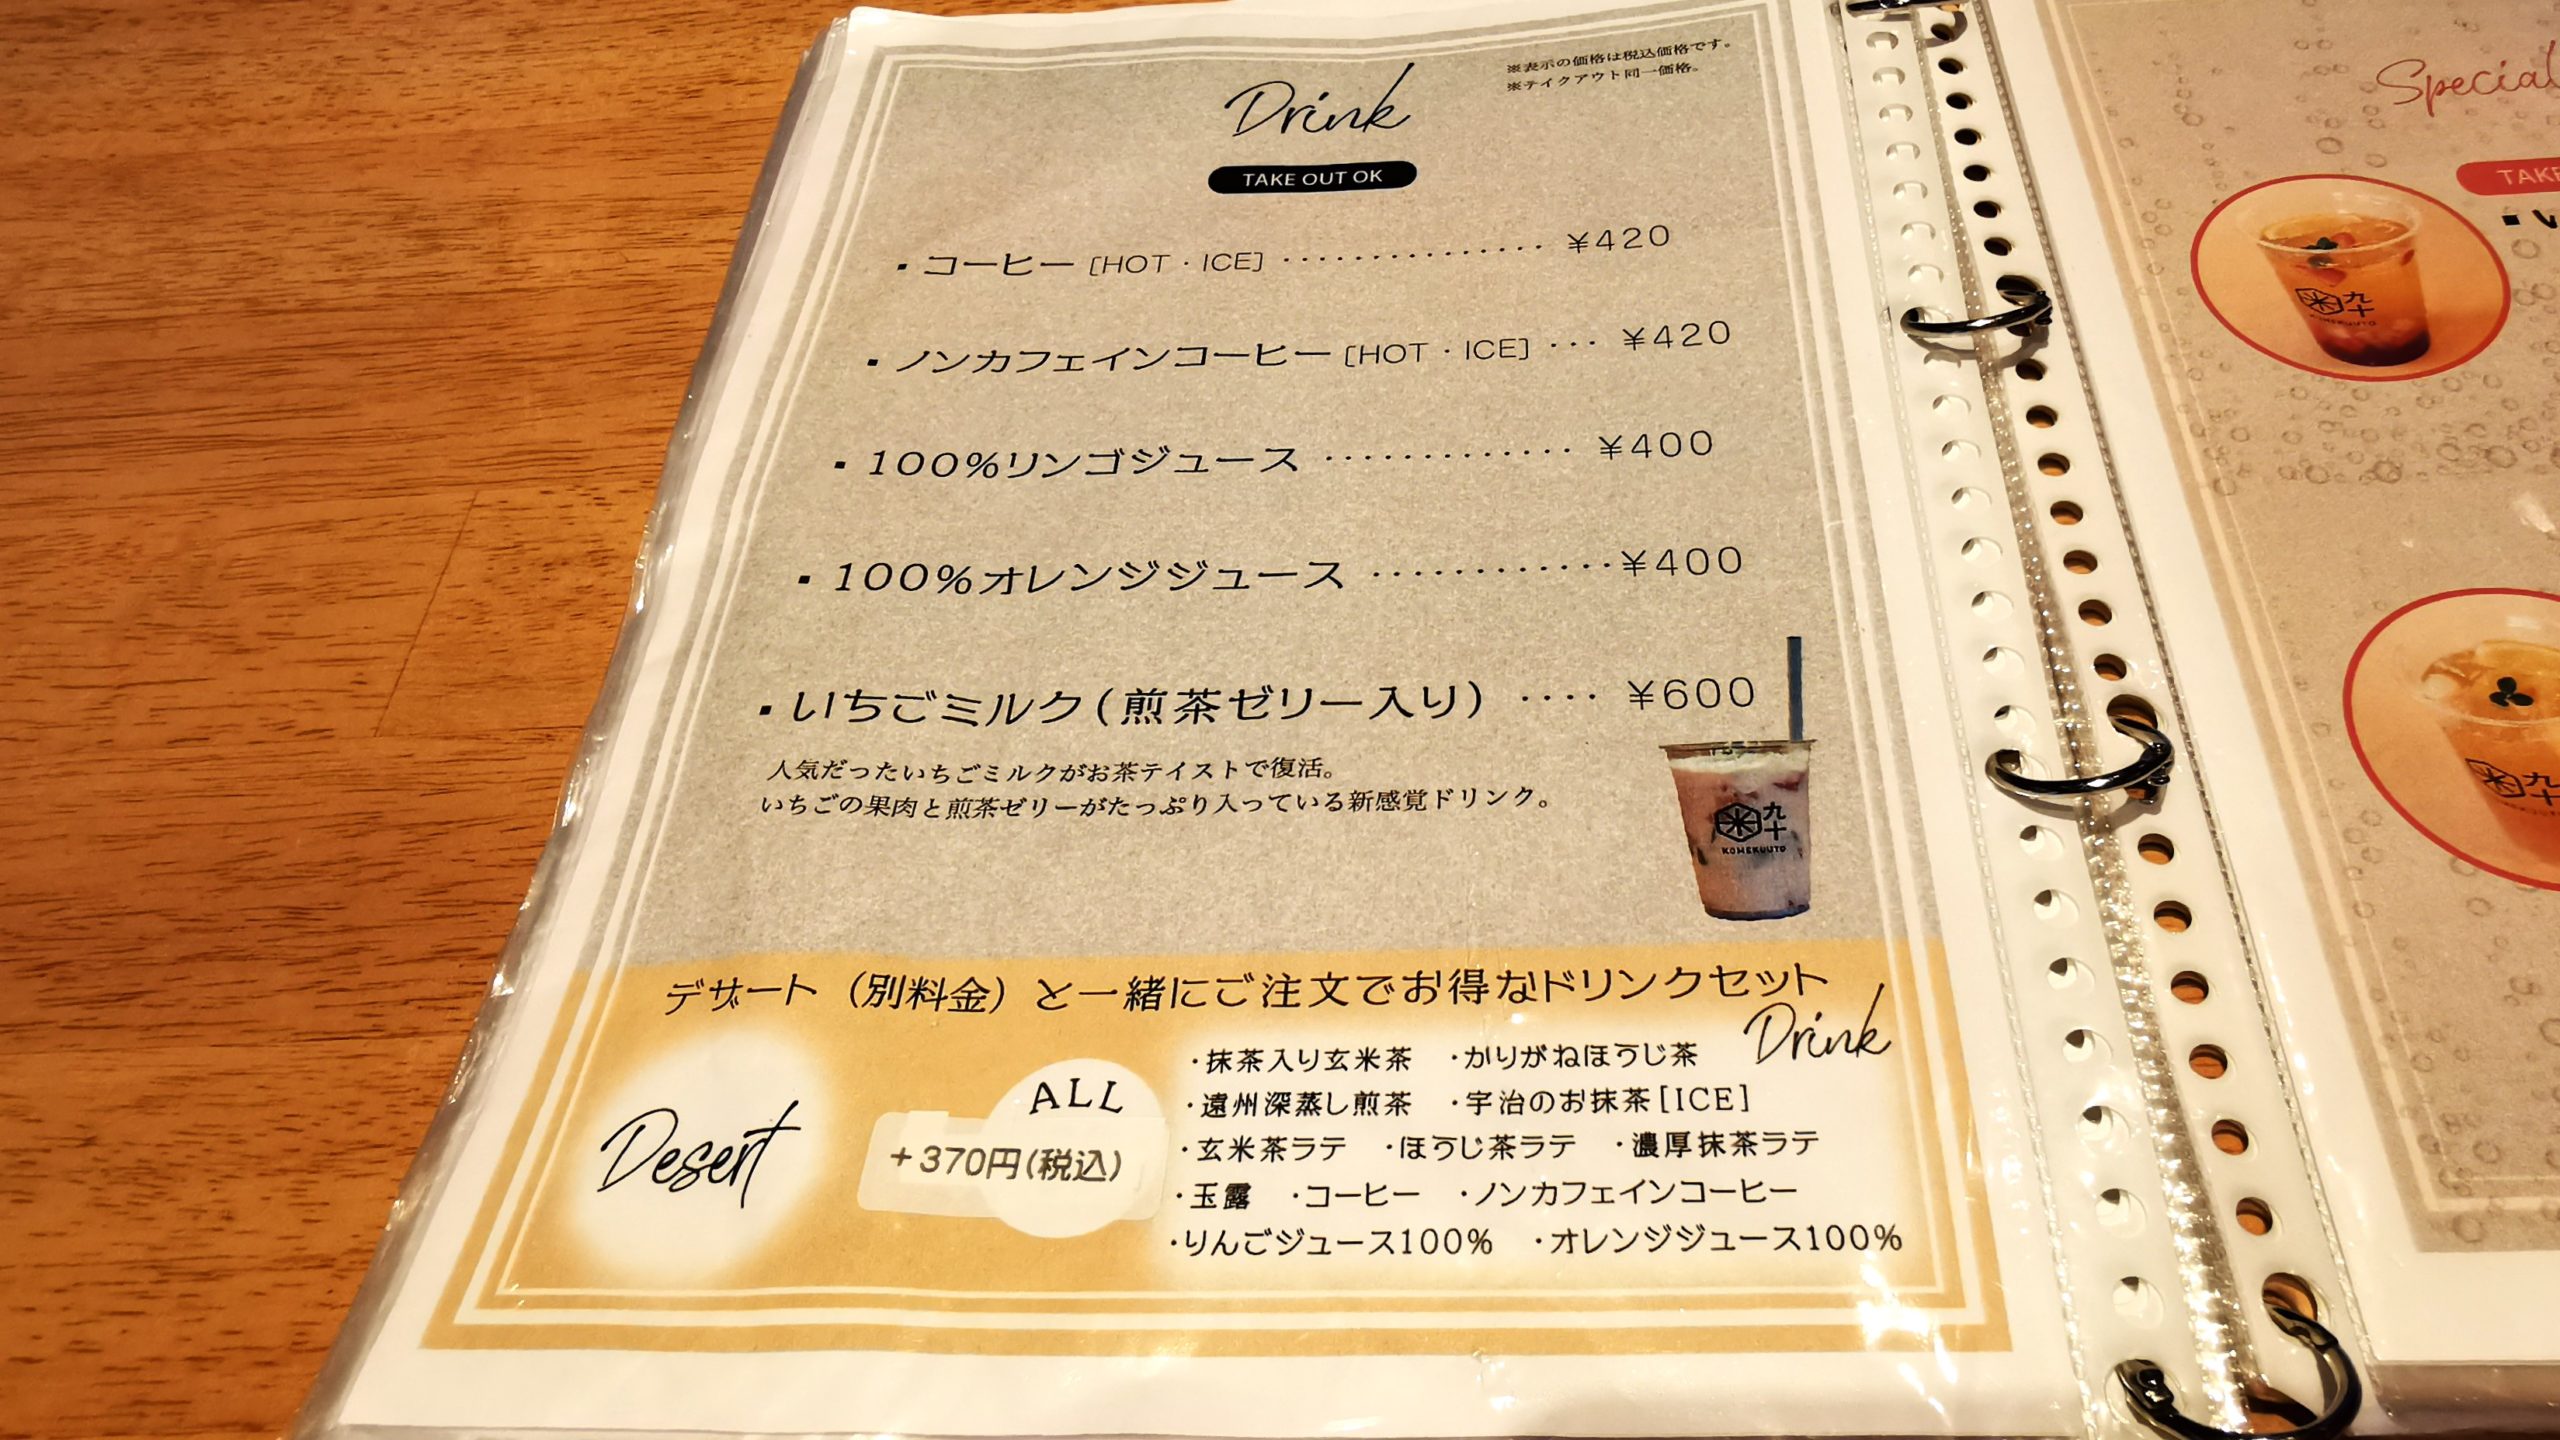 ※表示の価格は税込価格です。
※テイクアウト同一価格。
Drink
TAKE OUT OK
▪コーヒー [HOT・ICE] ··············· ¥420
▪ノンカフェインコーヒー [HOT・ICE] ··· ¥420
▪100%リンゴジュース ············· ¥400
▪100%オレンジジュース ············ ¥400
▪いちごミルク(煎茶ゼリー入り) ···· ¥600
人気だったいちごミルクがお茶テイストで復活。
いちごの果肉と煎茶ゼリーがたっぷり入っている新感覚ドリンク。
米 九十
KOMEKUUTO
デザート（別料金）と一緒にご注文でお得なドリンクセット
Drink
Desert
ALL
+370円(税込)
・抹茶入り玄米茶 ・かりがねほうじ茶
・遠州深蒸し煎茶 ・宇治のお抹茶[ICE]
・玄米茶ラテ ・ほうじ茶ラテ ・濃厚抹茶ラテ
・玉露 ・コーヒー ・ノンカフェインコーヒー
・りんごジュース100% ・オレンジジュース100%
Special
TAKE
米 九十
KOMEKUUTO
米 九十